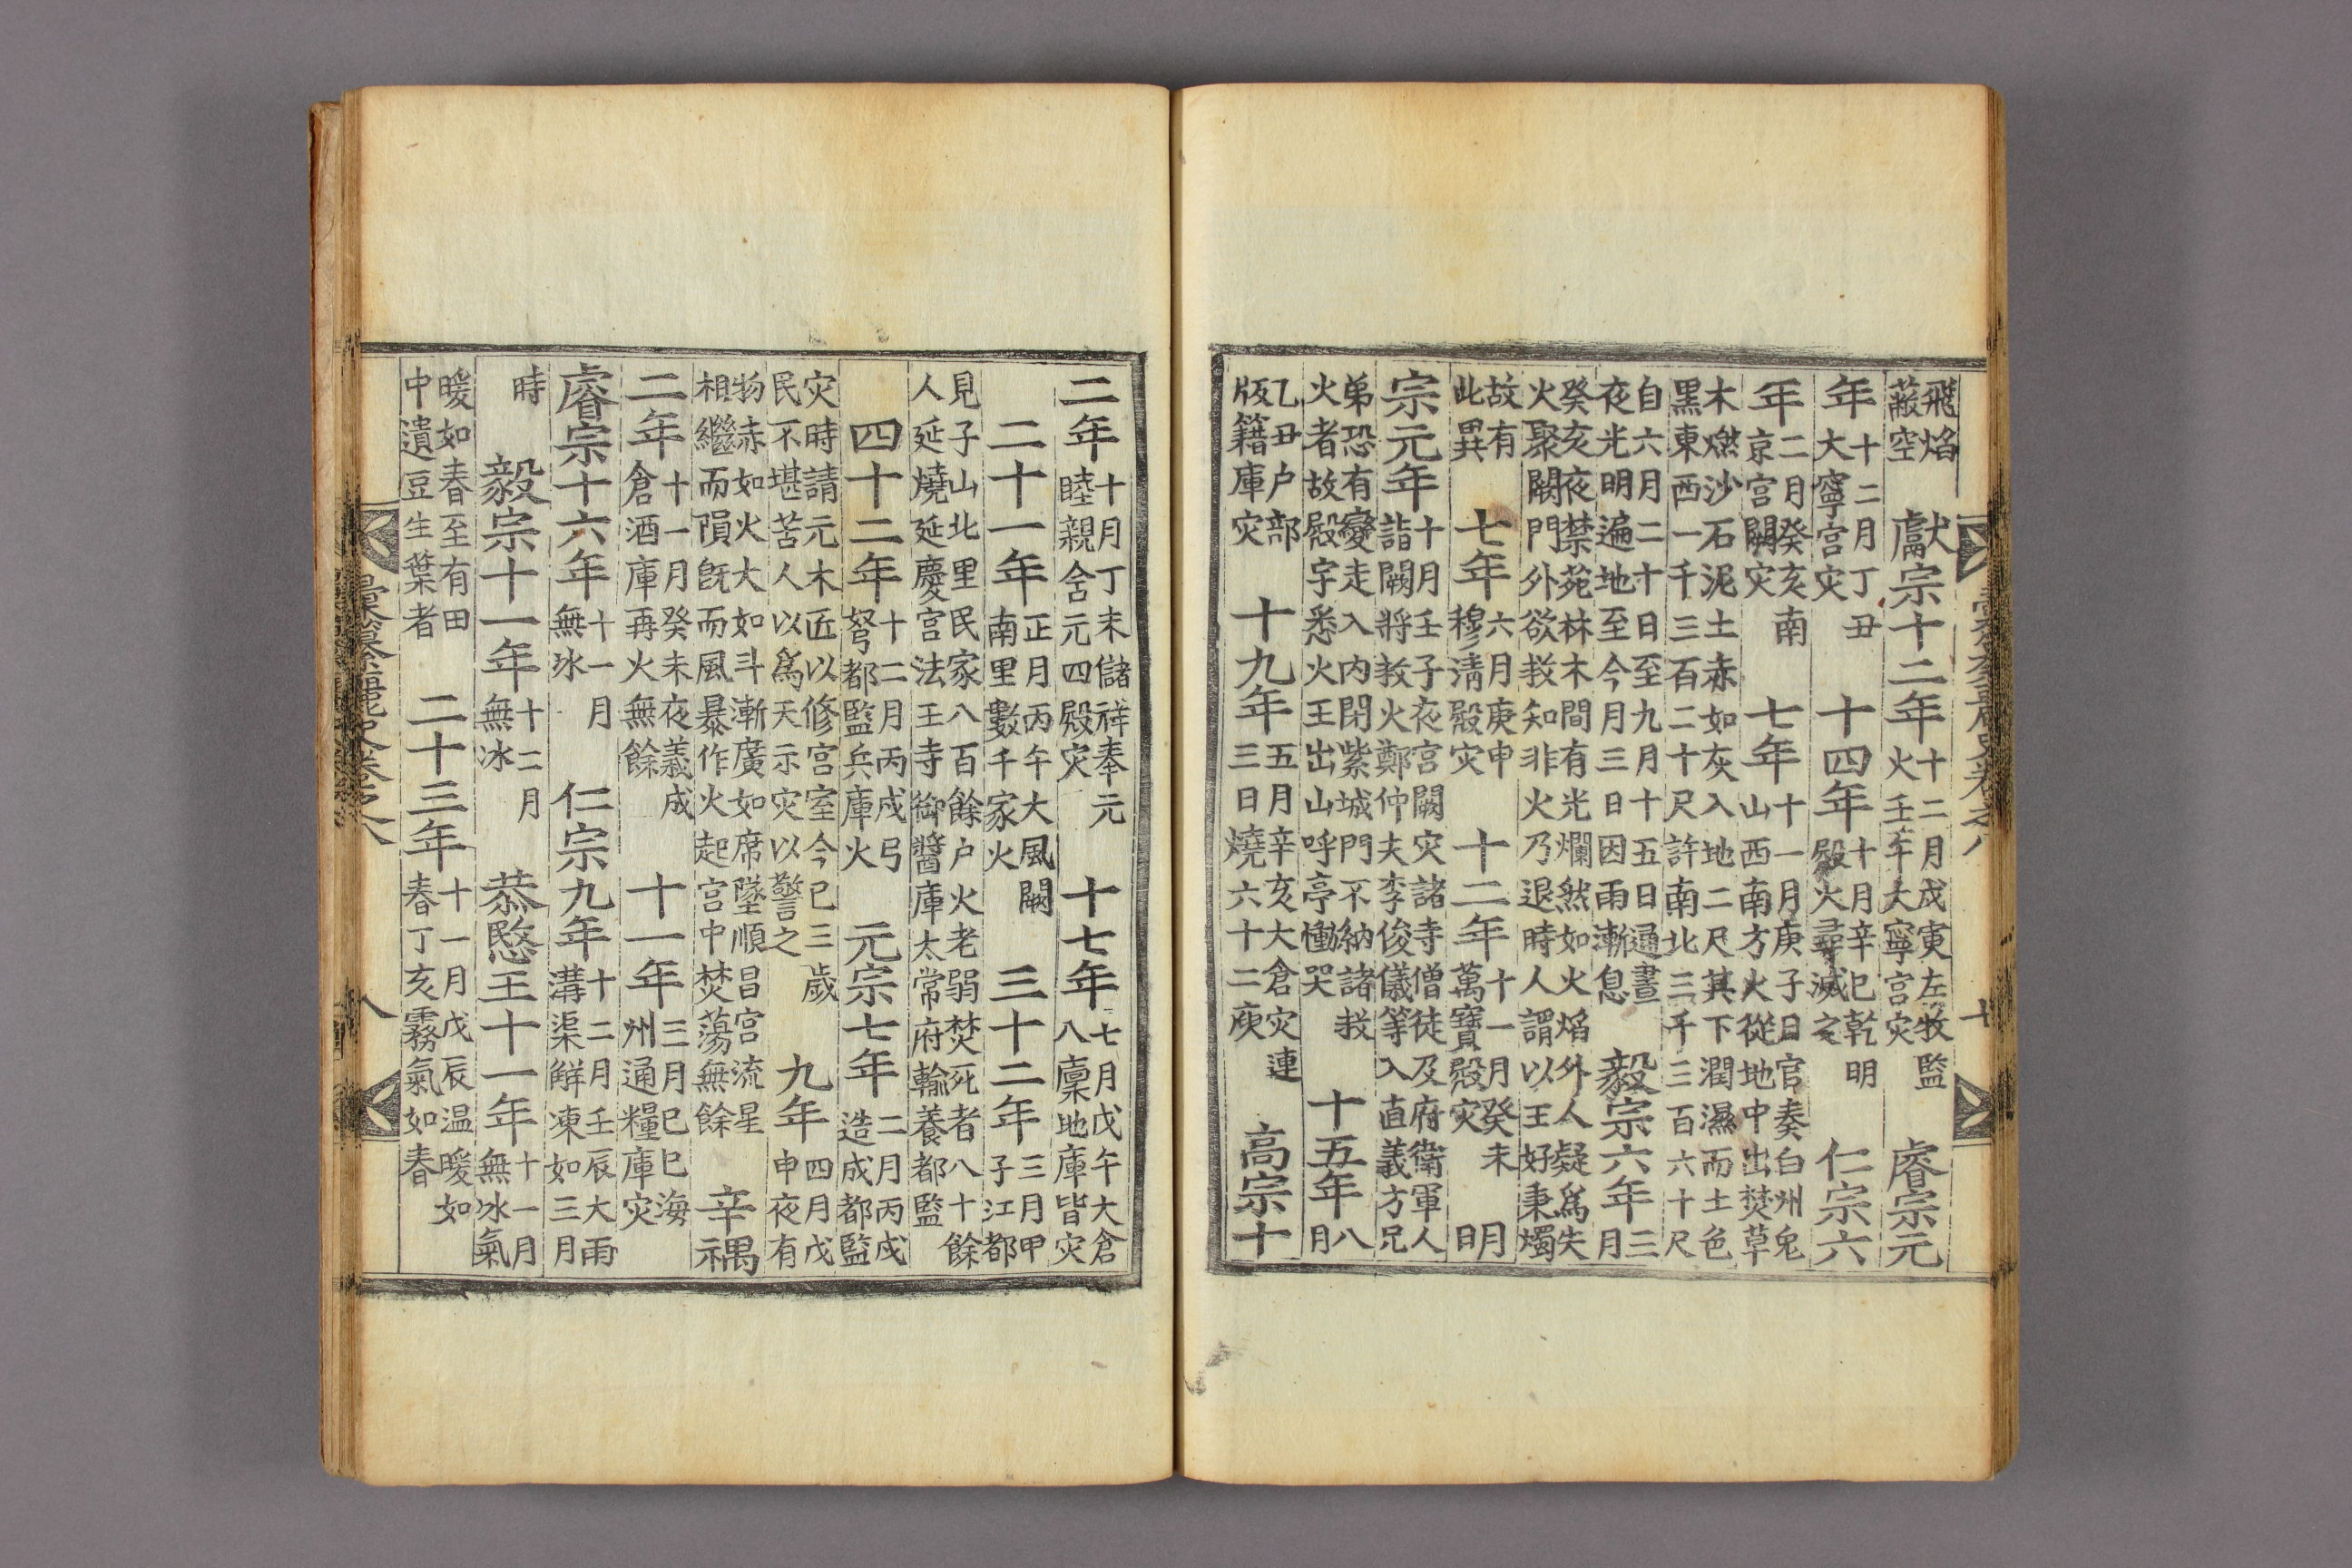 彙纂麗史卷之八
飛焰蔽空 獻宗十二年 十二月戊寅左牧監火壬午大寧宮灾 睿宗元
年 十二月丁丑大寧宮灾 十四年 十月辛巳乾明殿火尋滅之 仁宗六
年 二月癸亥南京宮闕灾 七年 十一月庚子日官奏白州兎山西南方火從地中出焚草
木燃沙石泥土赤如灰入地二尺其下潤濕而土色黑東西一千三百二十尺許南北三千三百六十尺
自六月二十日至九月十五日通晝夜光明遍地至今月三日因雨漸息 毅宗六年 三月
癸亥夜禁苑林木間有光爛然如火焰外人疑爲失火聚闕門外欲救知非火乃退時人謂以王好秉燭
故有此異 七年 六月庚申穆淸殿灾 十二年 十一月癸未萬寶殿灾 明
宗元年 十月壬子夜宮闕灾諸寺僧徒及府衛軍人詣闕將救火鄭仲夫李俊儀等入直義方兄
弟恐有變走入内閉紫城門不納諸救火者故殿宇悉火王出山呼亭慟哭 十五年 八月
乙丑户部版籍庫灾 十九年 五月辛亥大倉灾連三日燒六十二庾 高宗十
二年 十月丁未儲祥奉元睦親含元四殿灾 十七年 七月戊午大倉八廩地庫皆灾
二十一年 正月丙午大風闕南里數千家火 三十二年 三月甲子江都
見子山北里民家八百餘户火老弱焚死者八十餘人延燒延慶宮法王寺御醬庫太常府輸養都監
四十二年 十二月丙戌弓弩都監兵庫火 元宗七年 二月丙戌造成都監
灾時請元木匠以修宮室今已三歲民不堪苦人以爲天示灾以警之 九年 四月戊申夜有
物赤如火大如斗漸廣如席墜順昌宮流星相繼而隕旣而風暴作火起宮中焚蕩無餘 辛禑
二年 十一月癸未夜義成倉酒庫再火無餘 十一年 三月巳巳海州通糧庫灾
睿宗十六年 十一月無冰 仁宗九年 十二月壬辰大雨溝渠鮮凍如三月
時 毅宗十一年 十二月無冰 恭愍王十一年 十一月無冰氣
暖如春至有田中遺豆生葉者 二十三年 十一月戊辰温暖如春丁亥霧氣如春
彙纂麗史卷之八 八